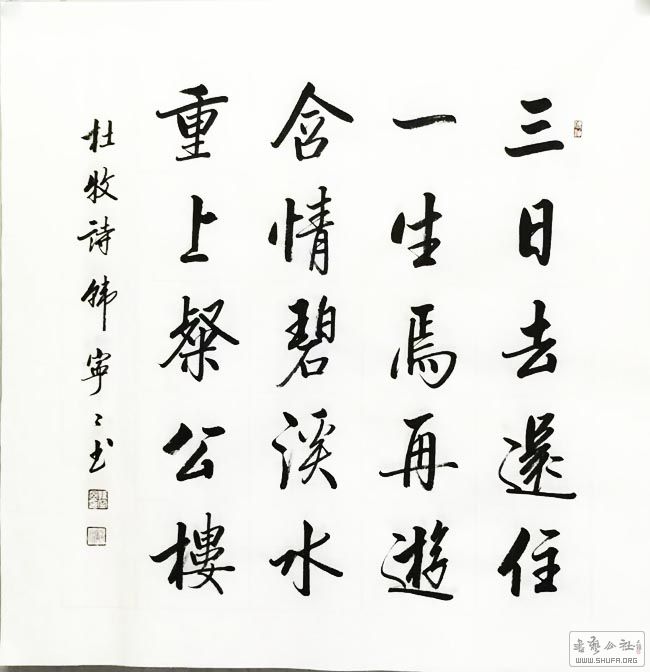 三日去還住
一生焉再遊
含情碧溪水
重上粲公樓
杜牧詩韓寧〻书
書藝公社
WWW.SHUFA.ORG